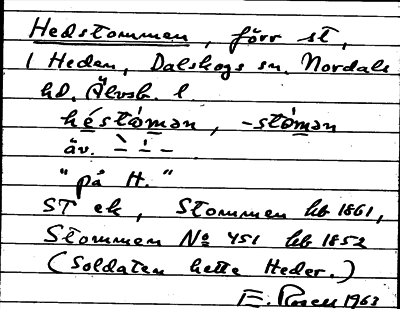 Hedstommen, förr st,
1 Heden, Dalskogs sn. Nordals
hd. Älvsb. l.
héstómən, -stómən
äv. `-  ̇-  -
"på H."
ST ek, Stommen hb 1861,
Stommen No 451 hb 1852
(Soldaten hette Heder.)
E. Rosell 1963